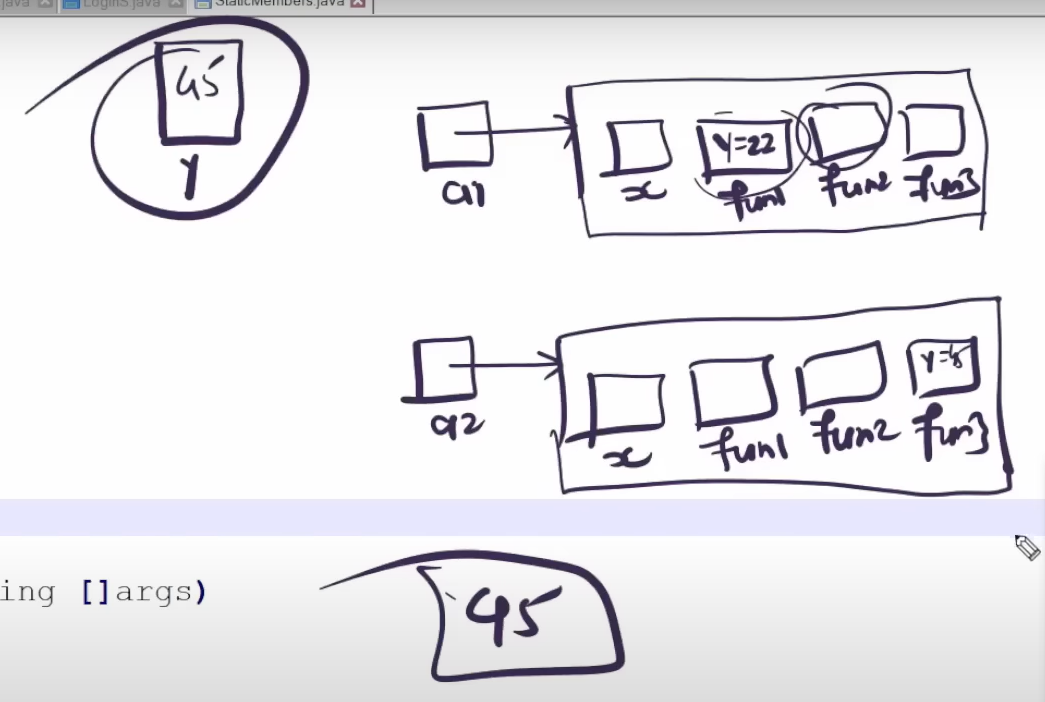 java LoginS java StaticMembers.java
45
y
a1
x y=22 fun1 fun2 fun3
a2
x fun1 fun2 fun3
ing []args)
45